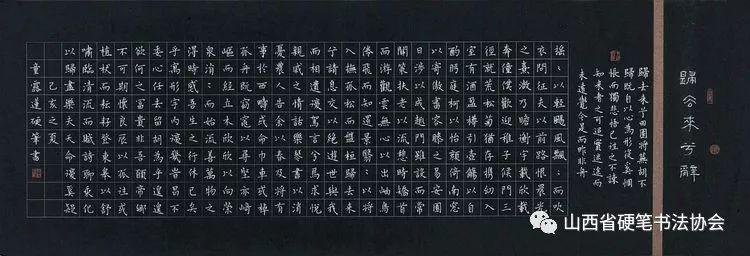 歸去來兮辭
歸去來兮田園將蕪胡不
歸既自以心為形役奚惆
悵而獨悲悟已往之不諫
知來者之可追實迷途而
未遠覺今是而昨非舟
搖:以輕颺風飄:而吹
衣問征夫以前路恨晨光
之熹微乃瞻衡宇載欣載
奔僮僕歡迎稚子候門三
徑就荒松菊猶存攜幼入
室有酒盈樽引壺觴以自
酌眄庭柯以怡顏倚南窗
以寄傲審容膝之易安園
日涉以成趣門雖設而常
關策扶老以流憩時矯首
而遐觀雲無心以出岫鳥
倦飛而知還景翳:以將
入撫孤松而盤桓歸去來
兮請息交以絕遊世與我
而相遺復駕言兮焉求悅
親戚之情話樂琴書以消
憂農人告余以春及將有
事於西疇或命巾車或棹
孤舟既窈窕以尋壑亦崎
嶇而經丘木欣欣以向榮
泉涓:而始流善萬物之
得時感吾生之行休已矣
乎寓形宇內復幾時曷不
委心任去留胡為乎遑遑
欲何之富貴非吾願帝鄉
不可期懷良辰以孤往或
植杖而耘耔登東皋以舒
嘯臨清流而賦詩聊乘化
以歸盡樂夫天命復奚疑
己亥之夏
童露蓮硬筆書
山西省硬笔书法协会